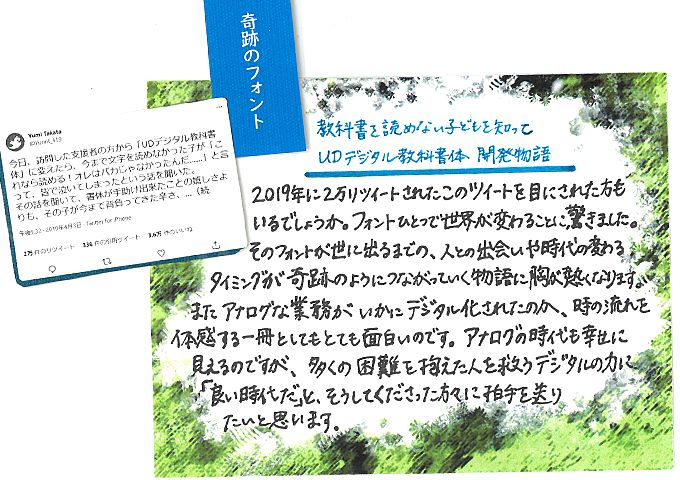 奇跡のフォント
教科書を読めない子どもを知って
UDデジタル教科書体 開発物語
Yumi Takata
今日、訪問した支援者の方から「UDデジタル教科書
体」に変えたら、今まで文字を読めなかった子が「こ
れなら読める!オレはバカじゃなかったんだ……」と言
って、皆で泣いてしまったという話を聞いた。
その話を聞いて、書体が手助け出来たことの嬉しさよ
りも、その子が今まで背負ってきた辛さ、…(続
午後9:32・2019年4月3日 Twitter for iPhone
件のリツイート 334 件の引用ツイート 3.6万 件のいいね
2019年に2万リツイートされたこのツイートを目にされた方も
いるでしょうか。フォントひとつで世界が変わることに、驚きました。
そのフォントが世に出るまでの、人との出会いや時代の変わる
タイミングが奇跡のようにつながっていく物語に胸が熱くなります。
またアナログな業務がいかにデジタル化されたのか、時の流れを
体感する一冊としてもとても面白いのです。アナログの時代も幸せに
見えるのですが、多くの困難を抱えた人を救うデジタルの力に
「良い時代だ」と、そうしてくださった方々に拍手を送り
たいと思います。